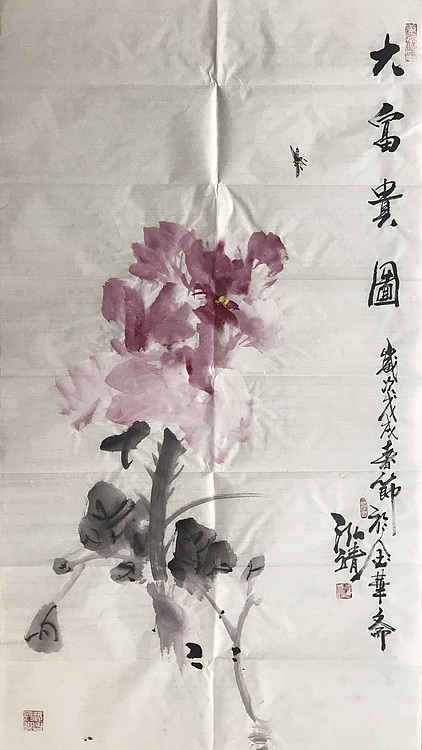 大富貴圖
歲次戊戌春節於金華齋